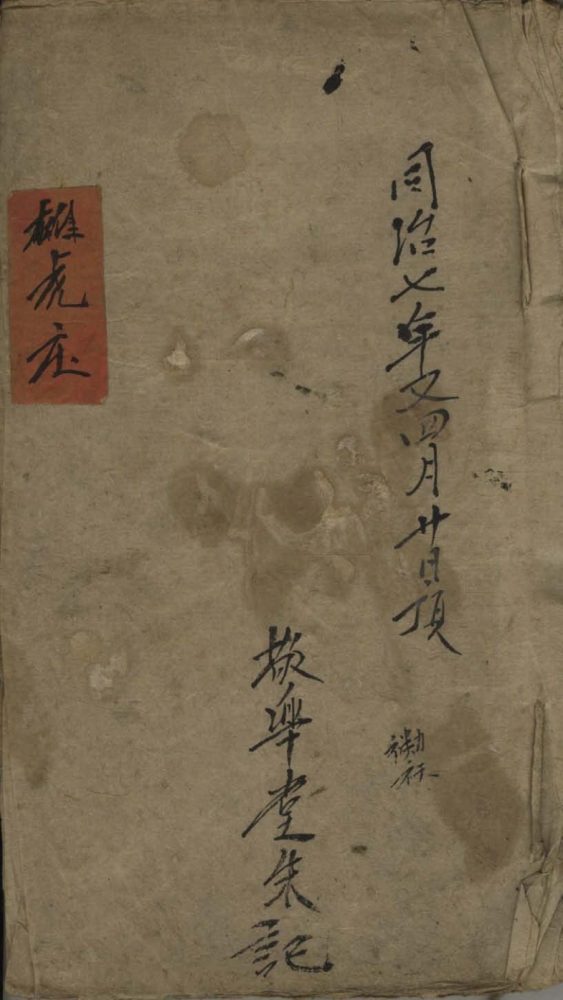 同治七年又四月廿日頂
敬樂堂朱記
虎庄